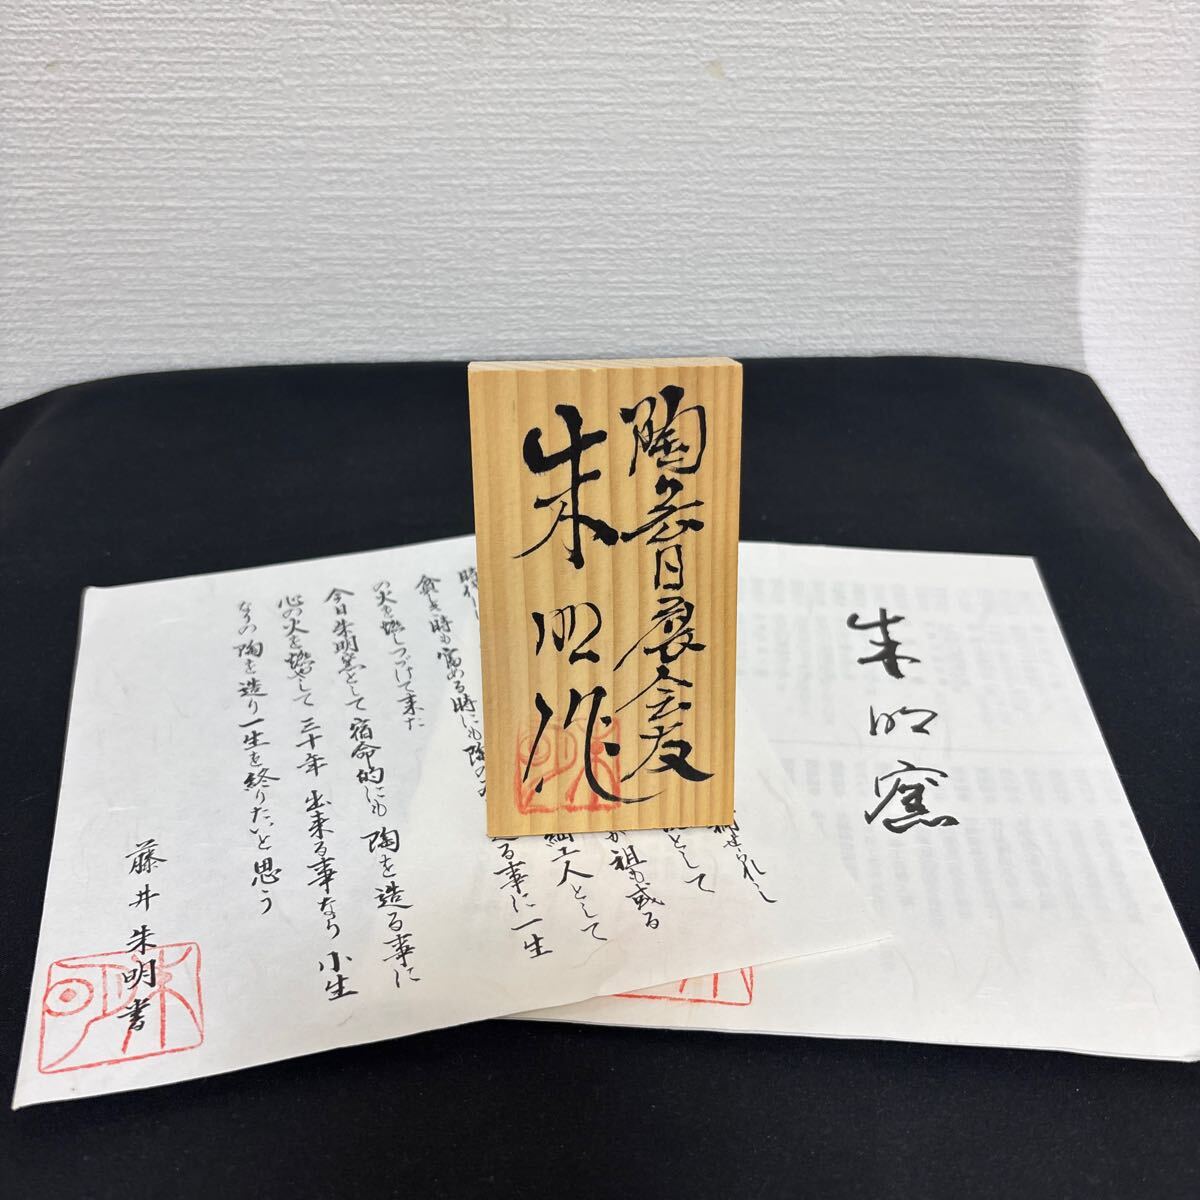 陶芸日展会友
朱明作
朱明窯
時代
貪しき時も富める時にも陶の
の火を燃しつづけて来た
今日朱明窯として宿命的にも陶を造る事に
心の火を燃やして三十年出来る事なら小生
なりの陶を造り一生を終りたいと思う
藤井朱明書
として
が祖も或る
細工人として
る事に一生
朱明